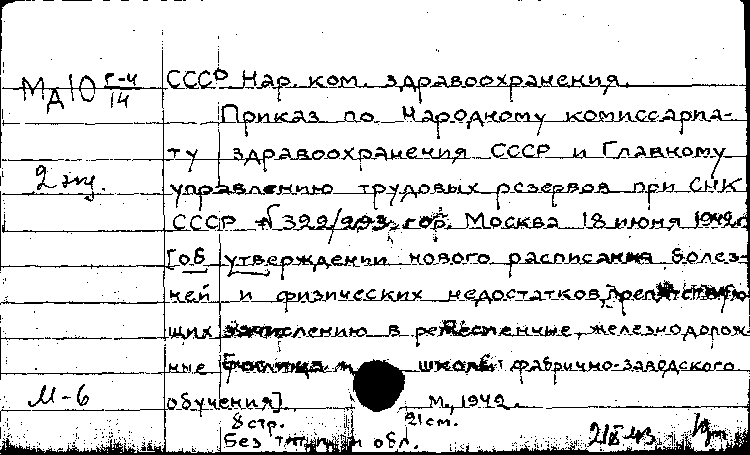 МД10 г-4/14
СССР Нар. ком. здравоохранения.
Приказ по Народному комиссариа-
ту здравоохранения СССР и Главному
2 экз.
управлению трудовых резервов при СНК
СССР № 322/293, гор. Москва 18 июня 1942 г.
[об утверждении нового расписания болез-
ней и физических недостатков, препятствую-
щих зачислению в ремесленные, железнодорож-
ные училища и школы фабрично-заводского
М-6
обучения]. М., 1942.
8 стр. 21 см.
Без тит. л. и обл.